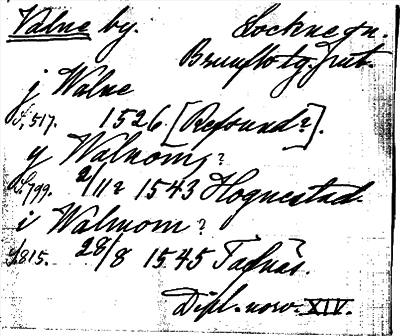 Valne by. Lockne sn.
Brunflo tg. Jmt.
j Walne
S. 517. 1526. [Refsund?].
y Walnom?
S. 799. 2/11? 1543 Hognestad.
i Walnom?
S. 815. 28/8 1545
Dipl. norv. XIV.